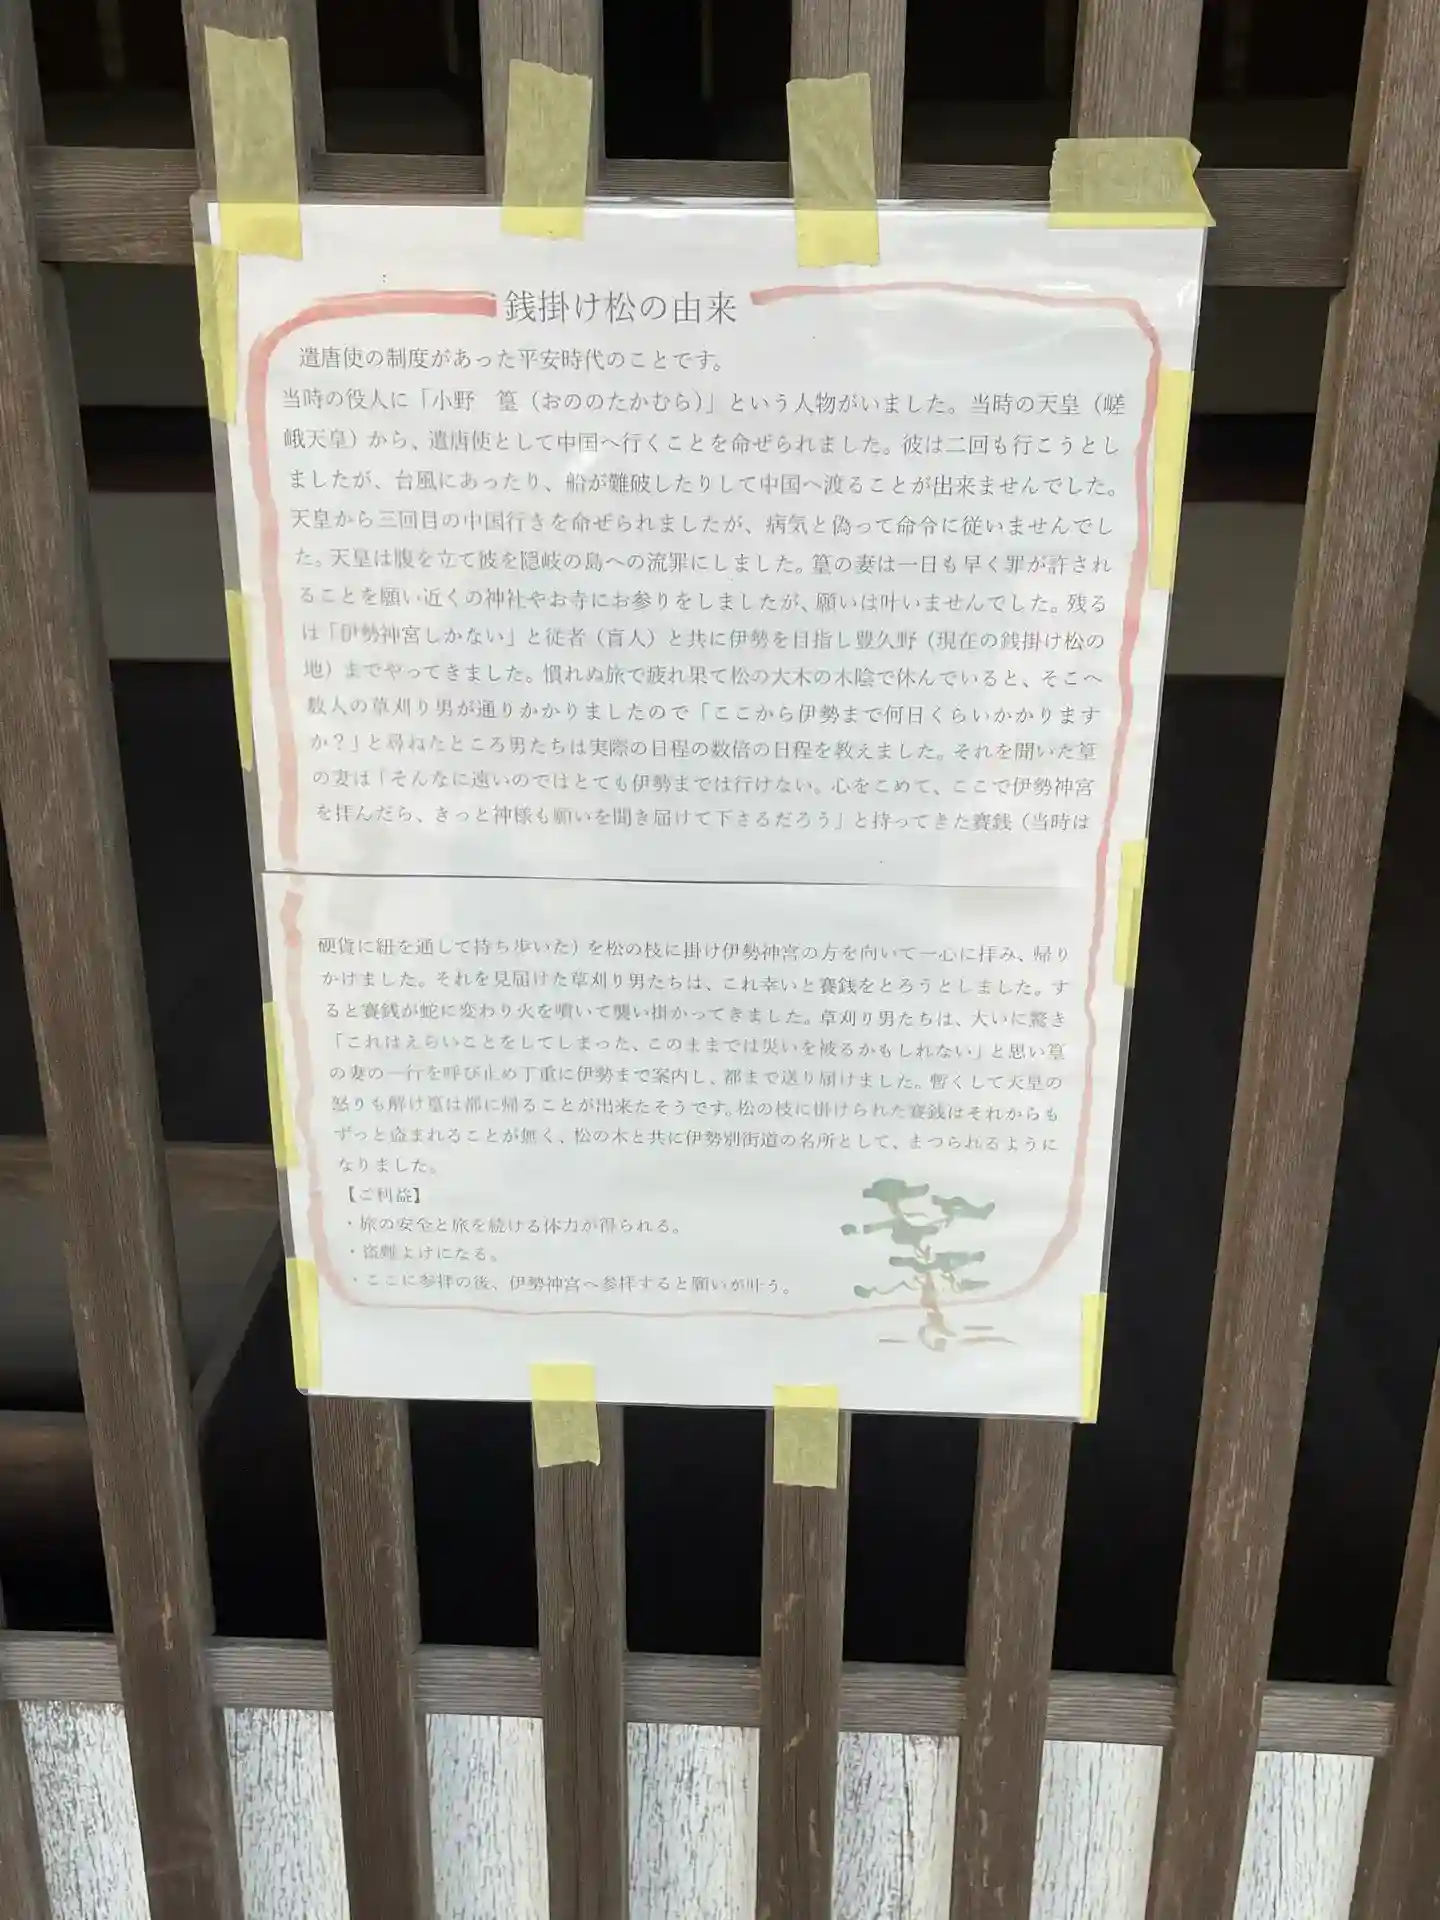 銭掛け松の由来
遣唐使の制度があった平安時代のことです。
当時の役人に「小野　篁（おののたかむら）」という人物がいました。当時の天皇（嵯
峨天皇）から、遣唐使として中国へ行くことを命ぜられました。彼は二回も行こうとし
ましたが、台風にあったり、船が難破したりして中国へ渡ることが出来ませんでした。
天皇から三回目の中国行きを命ぜられましたが、病気と偽って命令に従いませんでし
た。天皇は腹を立て彼を隠岐の島への流罪にしました。篁の妻は一日も早く罪が許され
ることを願い近くの神社やお寺にお参りをしましたが、願いは叶いませんでした。残る
は「伊勢神宮しかない」と従者（盲人）と共に伊勢を目指し豊久野（現在の銭掛け松の
地）までやってきました。慣れぬ旅で疲れ果て松の大木の木陰で休んでいると、そこへ
数人の草刈り男が通りかかりましたので「ここから伊勢まで何日くらいかかります
か？」と尋ねたところ男たちは実際の日程の数倍の日程を教えました。それを聞いた篁
の妻は「そんなに遠いのではとても伊勢までは行けない。心をこめて、ここで伊勢神宮
を拝んだら、きっと神様も願いを聞き届けて下さるだろう」と持ってきた賽銭（当時は
硬貨に紐を通して持ち歩いた）を松の枝に掛け伊勢神宮の方を向いて一心に拝み、帰り
かけました。それを見届けた草刈り男たちは、これ幸いと賽銭をとろうとしました。す
ると賽銭が蛇に変わり火を噴いて襲い掛かってきました。草刈り男たちは、大いに驚き
「これはえらいことをしてしまった、このままでは災いを被るかもしれない」と思い篁
の妻の一行を呼び止め丁重に伊勢まで案内し、都まで送り届けました。暫くして天皇の
怒りも解け篁は都に帰ることが出来たそうです。松の枝に掛けられた賽銭はそれからも
ずっと盗まれることが無く、松の木と共に伊勢別街道の名所として、まつられるように
なりました。
【ご利益】
・旅の安全と旅を続ける体力が得られる。
・盗難よけになる。
・ここに参拝の後、伊勢神宮へ参拝すると願いが叶う。